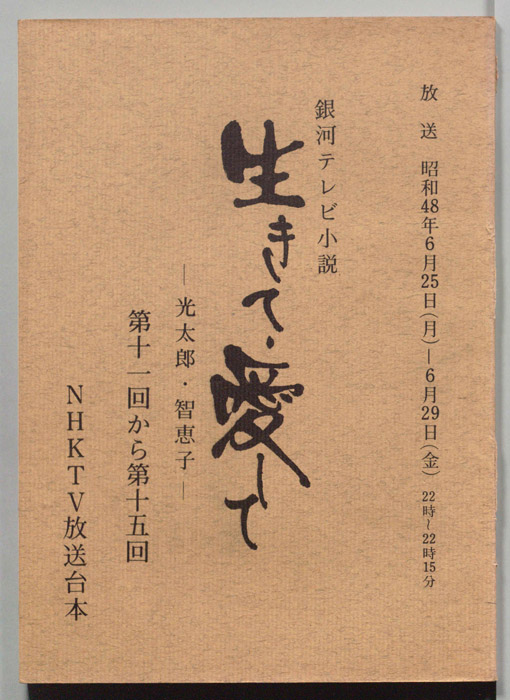 放送 昭和48年6月25日(月)―6月29日(金) 22時~22時15分
銀河テレビ小説
生きて・愛して
―光太郎・智恵子―
第十一回から第十五回
NHKTV放送台本